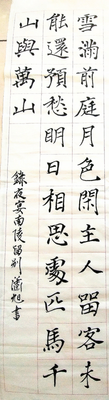 雪滿前庭月色閑主人留客未
能還預愁明日相思處匹馬千
山與萬山
錄夜宴南陵留別瀟旭書